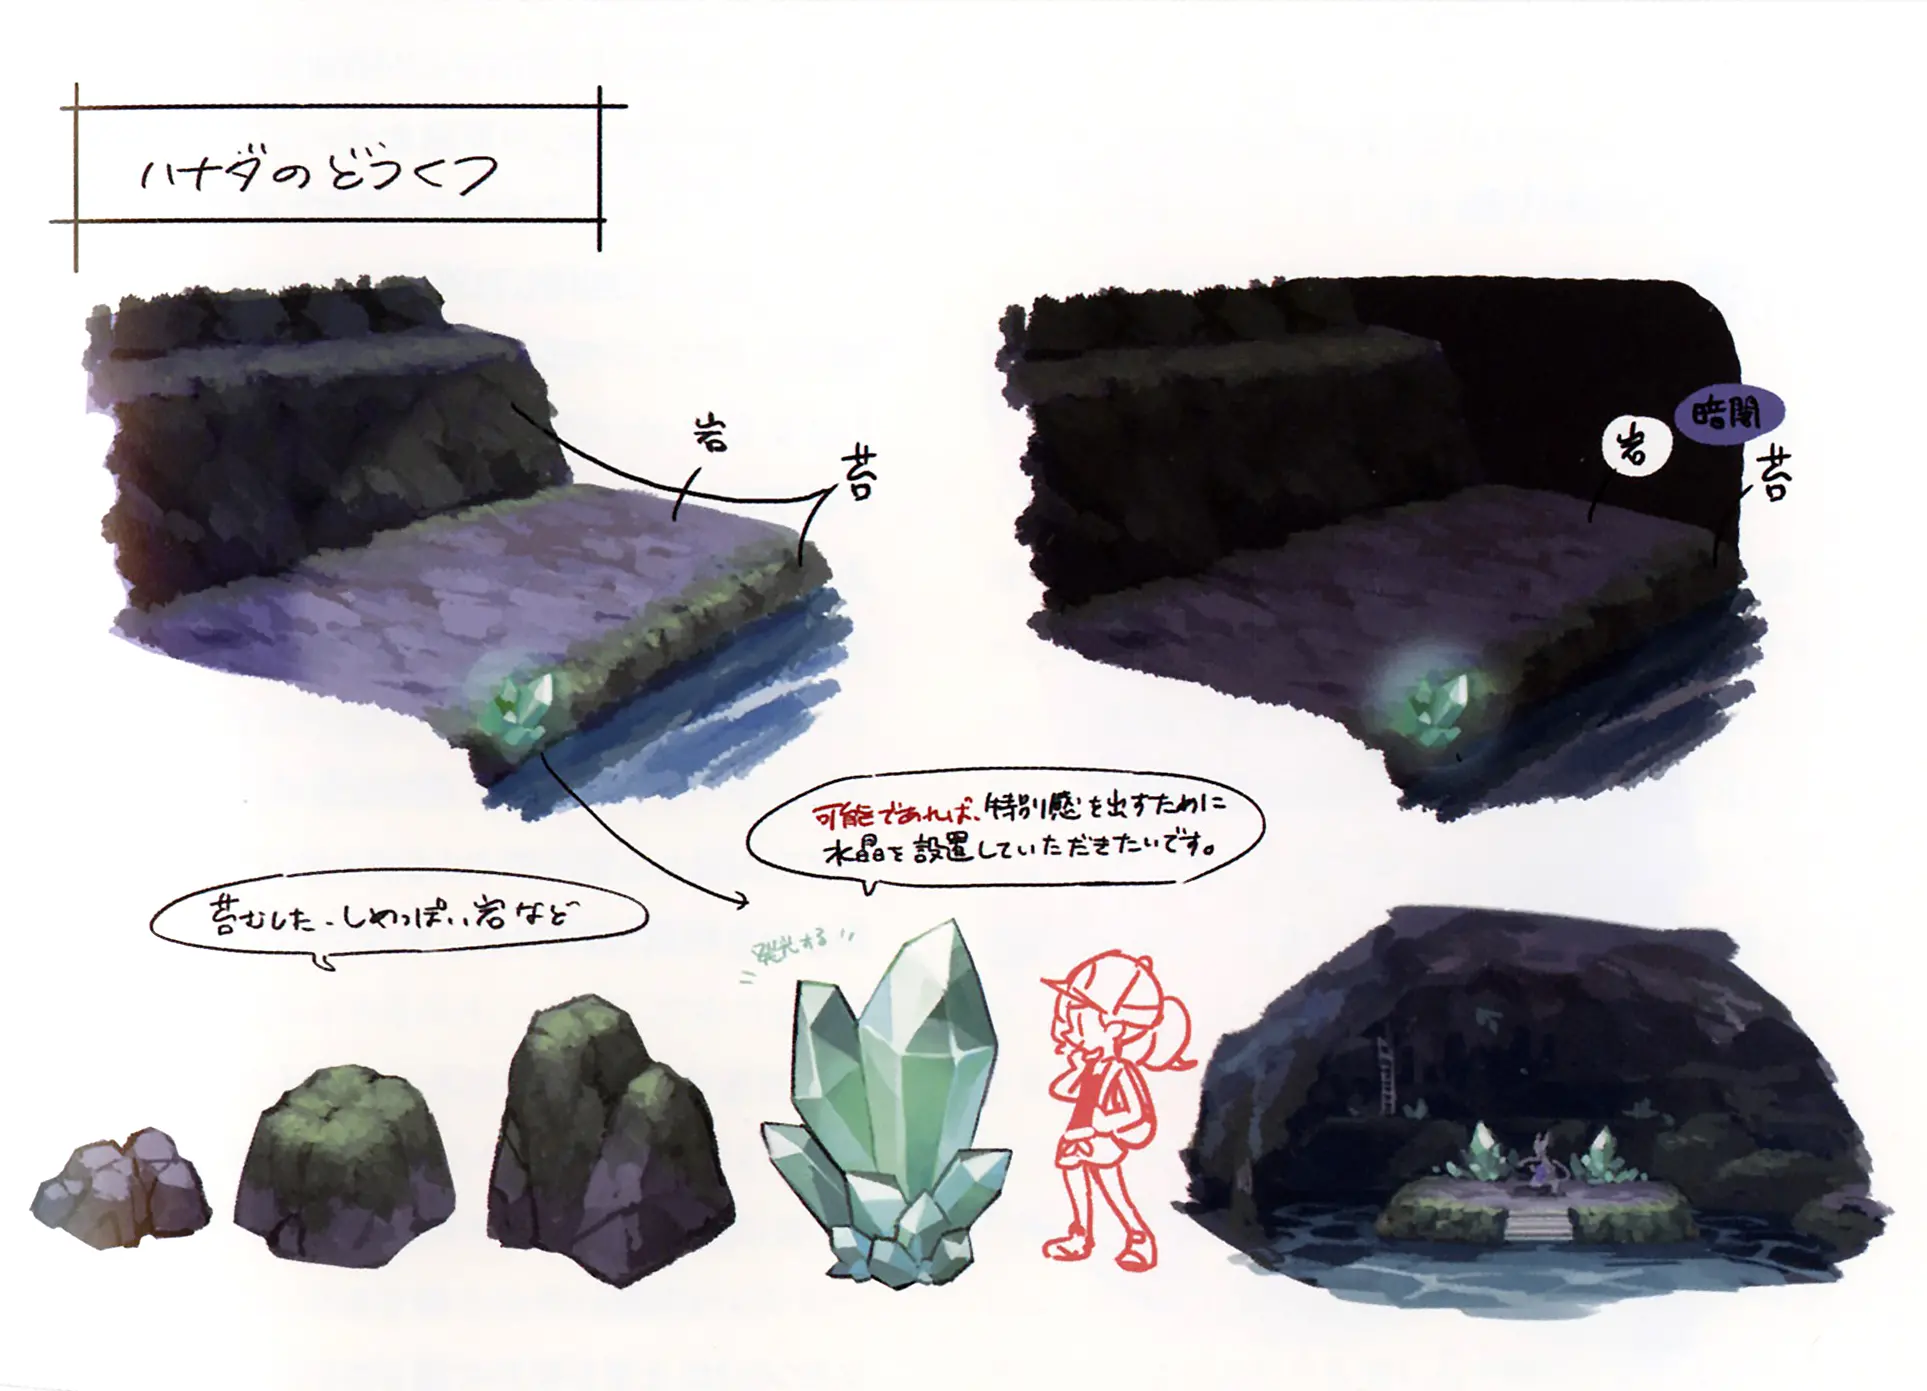 ハナダのどうくつ
岩
苔
暗闇
岩
苔
可能であれば、特別感を出すために
水晶を設置していただきたいです。
苔むした、しめっぽい岩など
発光する